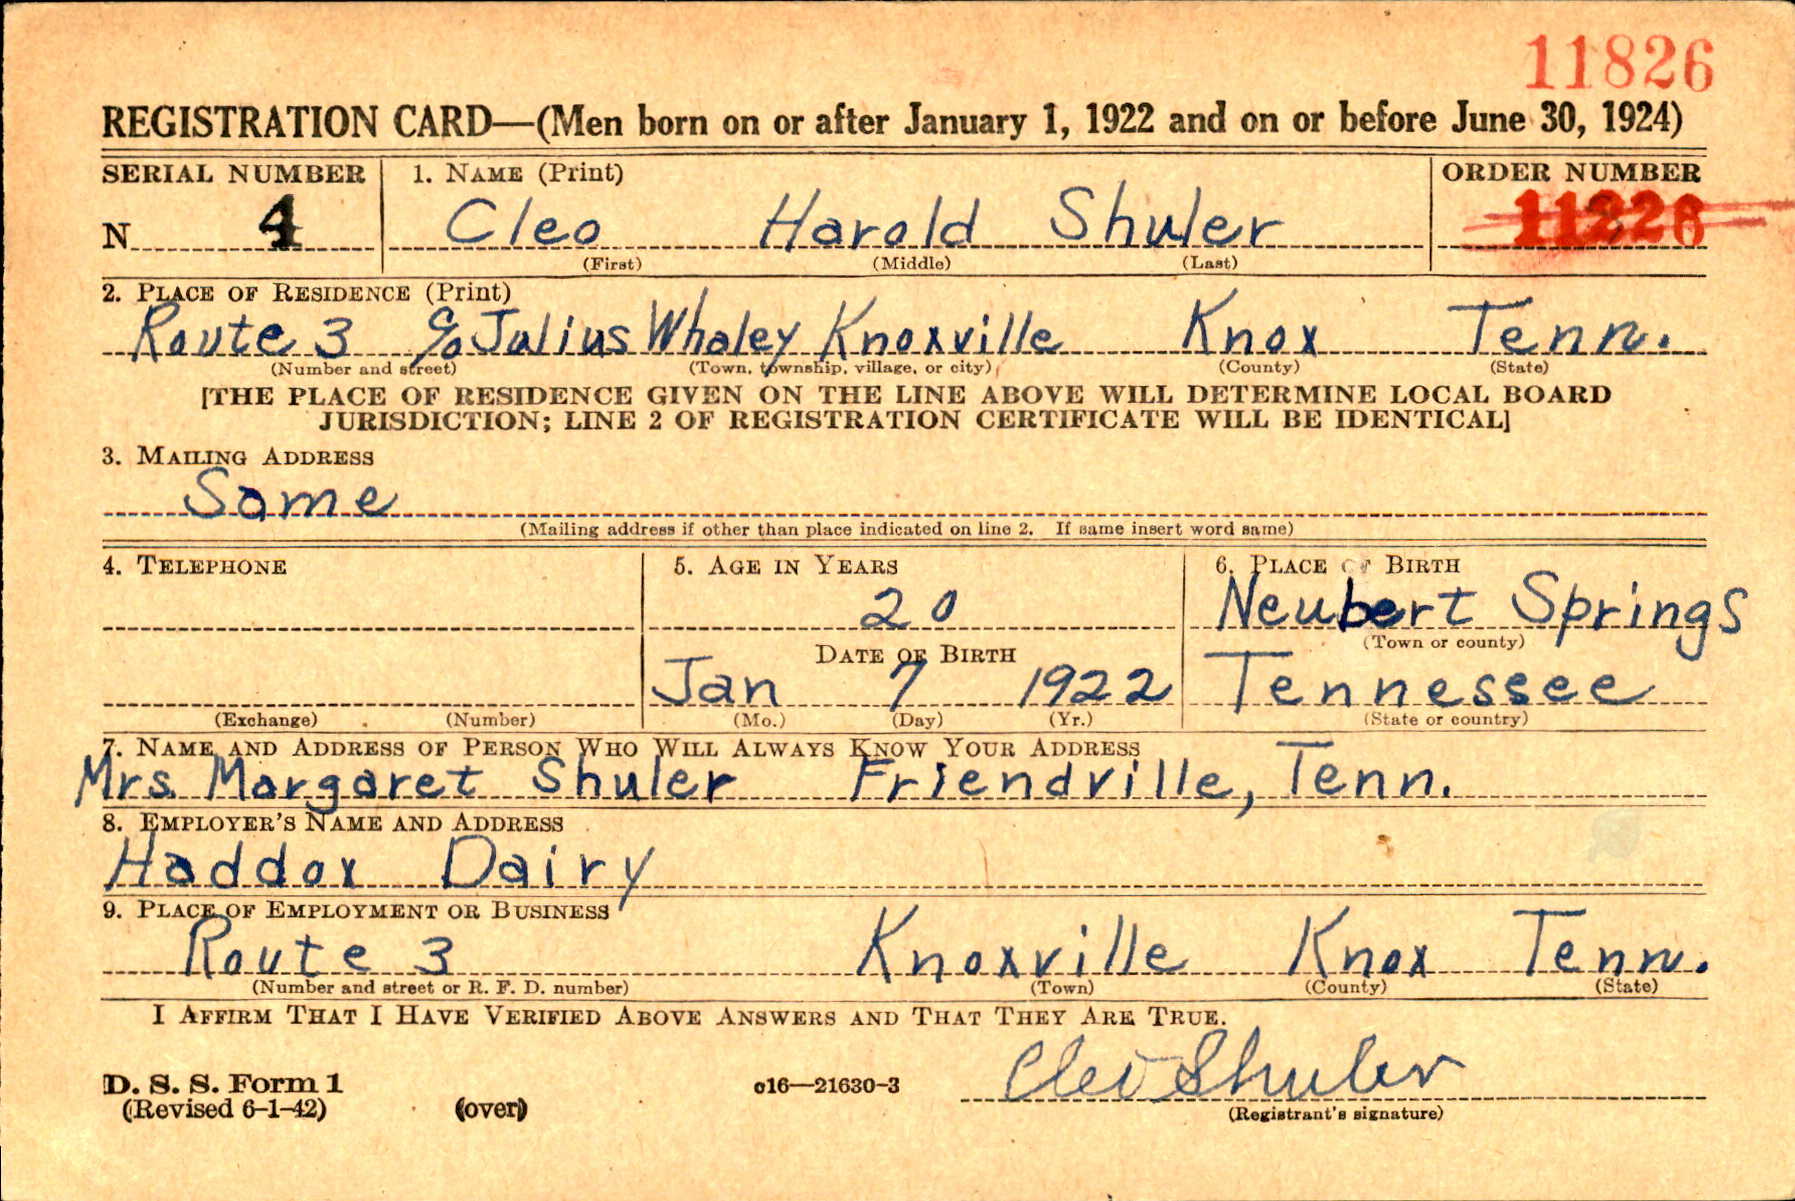 11826
REGISTRATION CARD—(Men born on or after January 1, 1922 and on or before June 30, 1924)
SERIAL NUMBER 1. NAME (Print) ORDER NUMBER
N 4 Cleo Harold Shuler 11226
(First) (Middle) (Last)
2. PLACE OF RESIDENCE (Print)
Route 3 c/o Julius Whaley Knoxville Knox Tenn.
(Number and street) (Town, township, village, or city) (County) (State)
[THE PLACE OF RESIDENCE GIVEN ON THE LINE ABOVE WILL DETERMINE LOCAL BOARD
JURISDICTION; LINE 2 OF REGISTRATION CERTIFICATE WILL BE IDENTICAL]
3. MAILING ADDRESS
Same
(Mailing address if other than place indicated on line 2. If same insert word same)
4. TELEPHONE 5. AGE IN YEARS 6. PLACE OF BIRTH
20 Neubert Springs
DATE OF BIRTH (Town or county)
Jan 7 1922 Tennessee
(Exchange) (Number) (Mo.) (Day) (Yr.) (State or country)
7. NAME AND ADDRESS OF PERSON WHO WILL ALWAYS KNOW YOUR ADDRESS
Mrs. Margaret Shuler Friendville, Tenn.
8. EMPLOYER'S NAME AND ADDRESS
Haddox Dairy
9. PLACE OF EMPLOYMENT OR BUSINESS
Route 3 Knoxville Knox Tenn.
(Number and street or R. F. D. number) (Town) (County) (State)
I AFFIRM THAT I HAVE VERIFIED ABOVE ANSWERS AND THAT THEY ARE TRUE.
Cleo Shuler
D. S. S. Form 1 16—21630-3
(Revised 6-1-42) (over) (Registrant's signature)